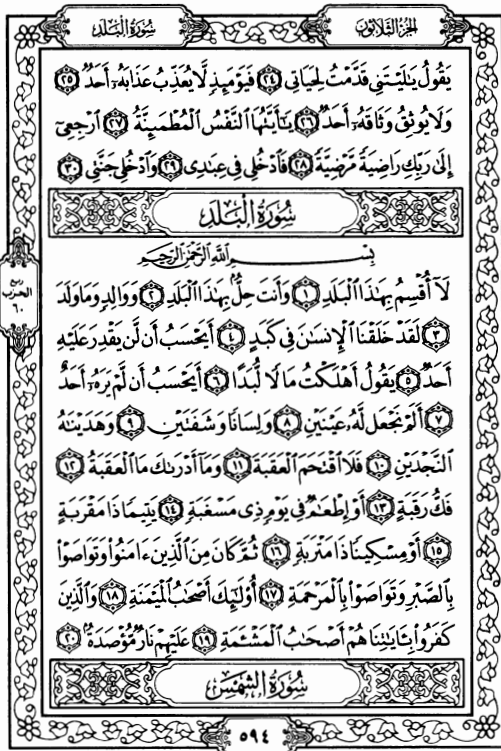 الجزء الثلاثون
سورة البلد
يَقُولُ يَٰلَيْتَنِى قَدَّمْتُ لِحَيَاتِى ٢٤ فَيَوْمَئِذٍ لَّا يُعَذِّبُ عَذَابَهُۥٓ أَحَدٌ ٢٥
وَلَا يُوثِقُ وَثَاقَهُۥٓ أَحَدٌ ٢٦ يَٰٓأَيَّتُهَا ٱلنَّفْسُ ٱلْمُطْمَئِنَّةُ ٢٧ ٱرْجِعِىٓ
إِلَىٰ رَبِّكِ رَاضِيَةً مَّرْضِيَّةً ٢٨ فَٱدْخُلِى فِى عِبَٰدِى ٢٩ وَٱدْخُلِى جَنَّتِى ٣٠
سُورَةُ الْبَلَدِ
بِسْمِ ٱللَّهِ ٱلرَّحْمَٰنِ ٱلرَّحِيمِ
لَآ أُقْسِمُ بِهَٰذَا ٱلْبَلَدِ ١ وَأَنتَ حِلٌّۢ بِهَٰذَا ٱلْبَلَدِ ٢ وَوَالِدٍ وَمَا وَلَدَ
٣ لَقَدْ خَلَقْنَا ٱلْإِنسَٰنَ فِى كَبَدٍ ٤ أَيَحْسَبُ أَن لَّن يَقْدِرَ عَلَيْهِ
أَحَدٌ ٥ يَقُولُ أَهْلَكْتُ مَالًا لُّبَدًا ٦ أَيَحْسَبُ أَن لَّمْ يَرَهُۥٓ أَحَدٌ
٧ أَلَمْ نَجْعَل لَّهُۥ عَيْنَيْنِ ٨ وَلِسَانًا وَشَفَتَيْنِ ٩ وَهَدَيْنَٰهُ
ٱلنَّجْدَيْنِ ١٠ فَلَا ٱقْتَحَمَ ٱلْعَقَبَةَ ١١ وَمَآ أَدْرَىٰكَ مَا ٱلْعَقَبَةُ ١٢
فَكُّ رَقَبَةٍ ١٣ أَوْ إِطْعَٰمٌ فِى يَوْمٍ ذِى مَسْغَبَةٍ ١٤ يَتِيمًا ذَا مَقْرَبَةٍ
١٥ أَوْ مِسْكِينًا ذَا مَتْرَبَةٍ ١٦ ثُمَّ كَانَ مِنَ ٱلَّذِينَ ءَامَنُوا۟ وَتَوَاصَوْا۟
بِٱلصَّبْرِ وَتَوَاصَوْا۟ بِٱلْمَرْحَمَةِ ١٧ أُو۟لَٰٓئِكَ أَصْحَٰبُ ٱلْمَيْمَنَةِ ١٨ وَٱلَّذِينَ
كَفَرُوا۟ بِـَٔايَٰتِنَا هُمْ أَصْحَٰبُ ٱلْمَشْـَٔمَةِ ١٩ عَلَيْهِمْ نَارٌ مُّؤْصَدَةٌۢ ٢٠
سُورَةُ الشَّمْسِ
ربع
الحزب
٦٠
٥٩٤